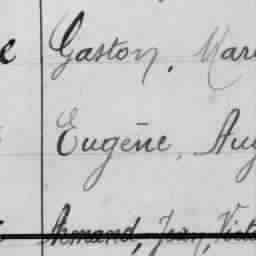 Gaston, Mar
Eugène, Aug
Armand, Jean, Vict